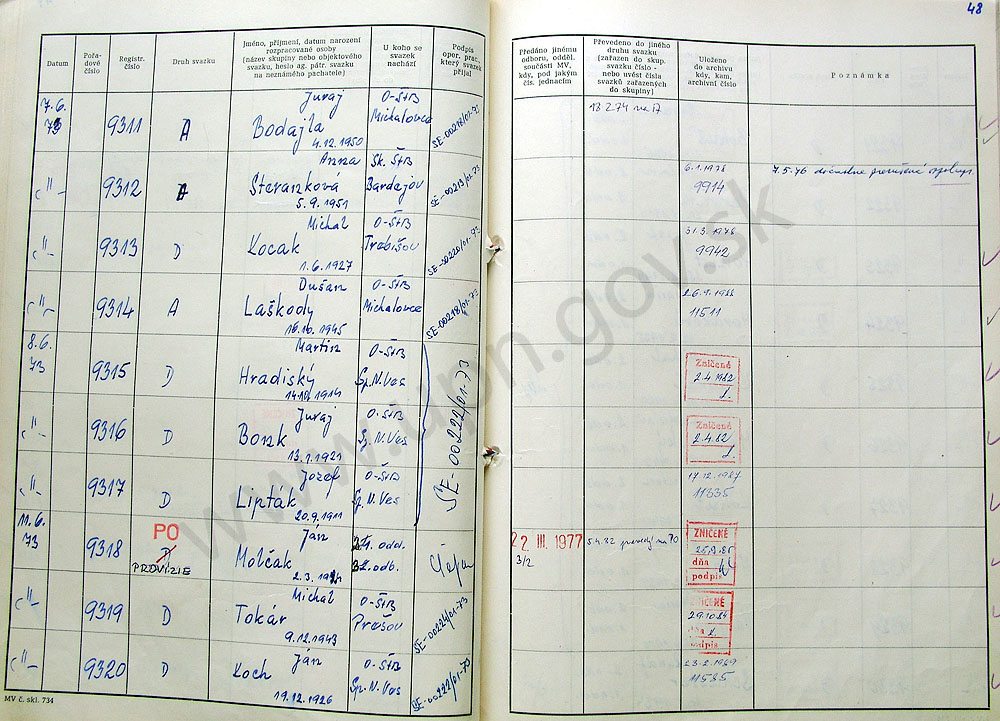 48
Datum
Pořadové číslo
Registr. číslo
Druh svazku
Jméno, příjmení, datum narození rozpracované osoby
(název skupiny nebo objektového svazku, heslo ag. pátr. svazku na neznámého pachatele)
U koho se svazek nachází
Podpis oper. prac., který svazek přijal
Předáno jinému odboru, odděl. součásti MV, kdy, pod jakým čís. jednacím
Převedeno do jiného druhu svazku (zařazen do skup. svazku číslo - nebo uvést čísla svazků zařazených do skupiny)
Uloženo do archivu kdy, kam, archivní číslo
Poznámka
7.6. 73 9311 A Juraj Bodajla 4.12.1950 O-ŠtB Michalovce SE-00218/01-73 13274 na 17
-"- 9312 A Anna Šteranková 5.9.1951 Sk. ŠtB Bardejov SE-00219/01-73 6.1.1978 9914 7.5.76
-"- 9313 D Michal Kocak 1.6.1927 O-ŠtB Trebišov SE-00220/01-73 31.3.1978 9942
-"- 9314 A Dušan Laškody 16.10.1945 O-ŠtB Michalovce SE-00218/01-73 11511
8.6. 73 9315 D Martin Hradiský O-ŠtB Sp.N.Ves SE-00222/01-73 Zničené 2.4.1982
-"- 9316 D Juraj Bonk 13.1.1921 O-ŠtB Sp.N.Ves Zničené 2.4.82
-"- 9317 D Jozef Lipták 20.9.1911 O-ŠtB Sp.N.Ves 17.12.1987 11335
11.6. 73 9318 PO D PROVÍZIE Ján Molčak 2.3. odd. odb. 22 III. 1977 3/2 5.4.82 na 70 ZNIČENÉ dňa podpis
-"- 9319 D Michal Tokár 9.12.1943 O-ŠtB Prešov SE-00224/01-73 ZNIČENÉ 29.10.84 podpis
-"- 9320 D Ján Koch 19.12.1926 O-ŠtB Sp.N.Ves SE-00222/01-73 23.2.1989 11585
MV č. skl. 734
www.upn.gov.sk